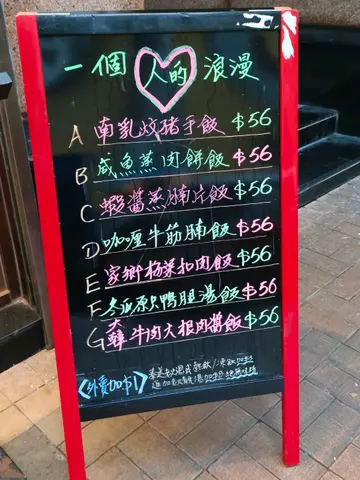 一個人的浪漫
A 南乳炆豬手飯 $56
B 咸魚蒸肉餅飯 $56
C 蝦醬蒸腩片飯 $56
D 咖喱牛筋腩飯 $56
E 家鄉梅菜扣肉飯 $56
F 冬瓜原只鴨腿湯飯 $56
G 牛肉大根肉醬飯 $56
外賣加$1